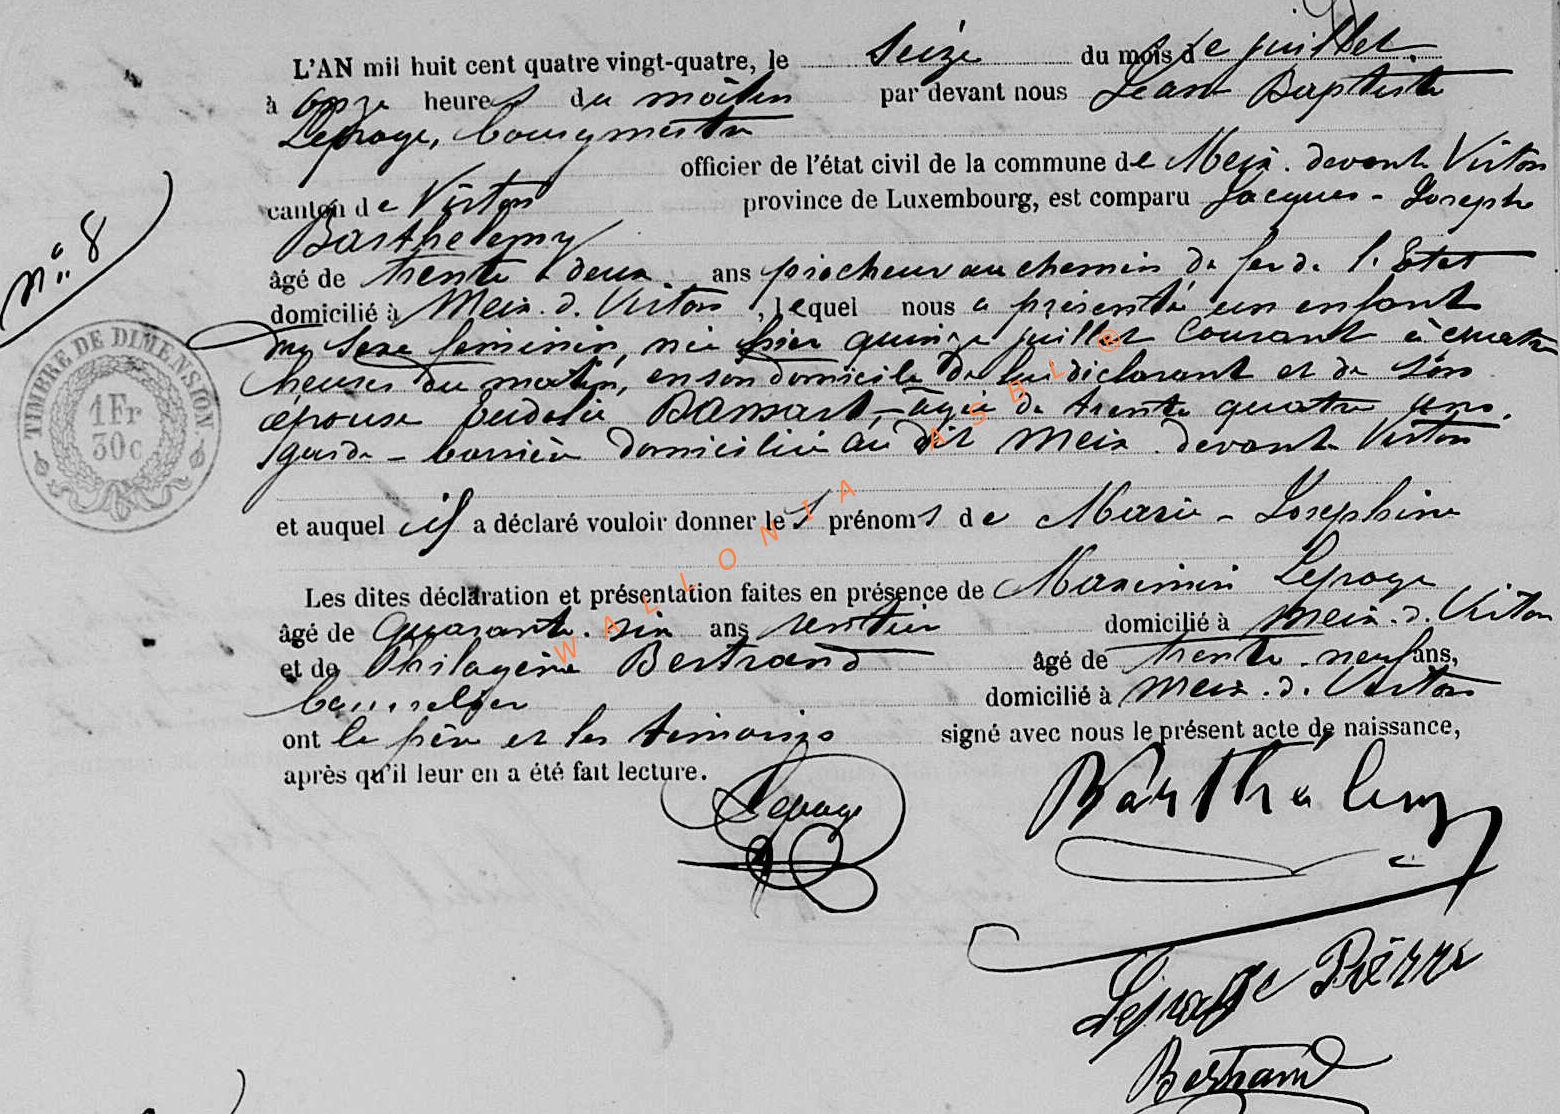 L'AN mil huit cent quatre vingt-quatre, le seize du mois de juillet
à onze heures du matin par devant nous Jean Baptiste
Lepage, bourgmestre
officier de l'état civil de la commune de Meix. devant Virton
canton de Virton province de Luxembourg, est comparu Jacques - Joseph
Barthelemy
âgé de trente deux ans piocheur au chemin de fer de l'Etat
domicilié à Meix. d. Virton, lequel nous a présenté un enfant
du sexe feminin, née hier quinze juillet courant à quatre
heures du matin, en son domicile de lui déclarant et de son
épouse Bansart, âgée de trente quatre ans.
garde - barrière domiciliée au dit Meix. devant Virton
et auquel il a déclaré vouloir donner les prénoms de Marie - Josephine
Les dites déclaration et présentation faites en présence de Maximin Lepage
âgé de quarante. six ans rentier domicilié à Meix. d. Virton
et de Philogène Bertrand âgé de trente. neuf ans,
domicilié à Meix. d. Virton
ont le père et les témoins signé avec nous le présent acte de naissance,
après qu'il leur en a été fait lecture.
Lepage
Barthélemy
Lepage Pierre
Bertrand
n° 8
TIMBRE DE DIMENSION
1Fr
30c
WALLONIA ASBL ®